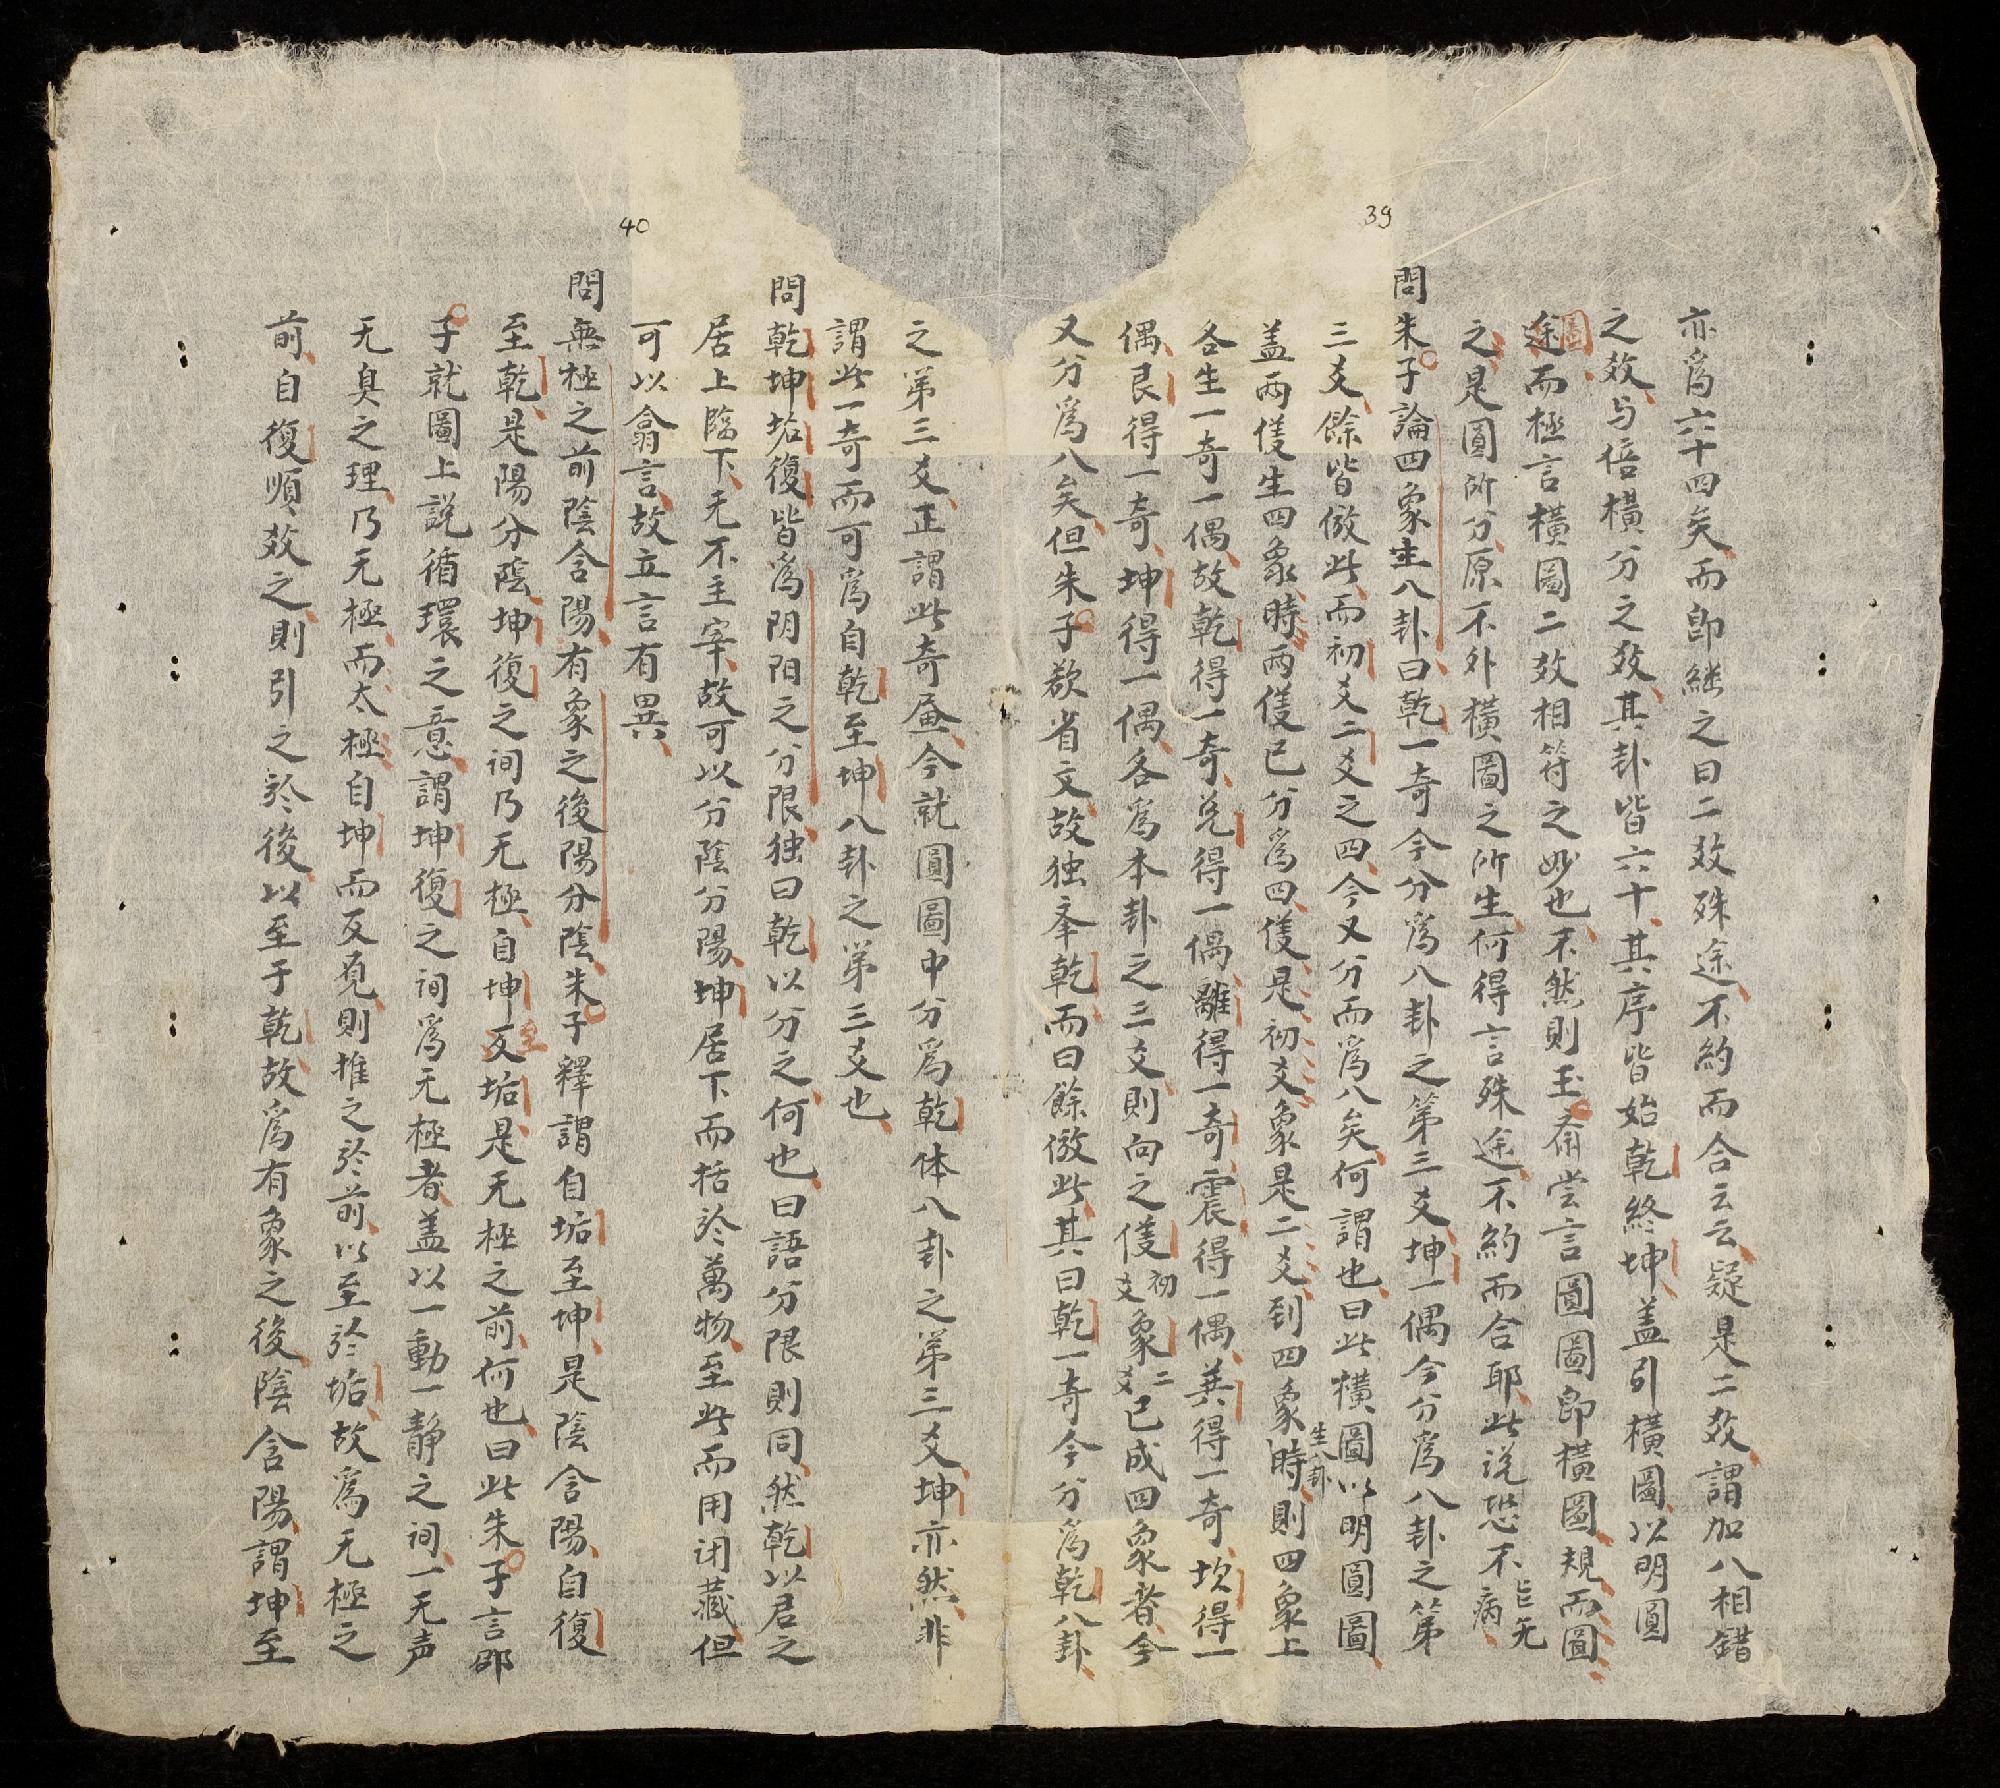 39
亦爲六十四矣而即継之曰二效殊途不約而合云云疑是二效謂加八相錯
之效与倍橫分之效其卦皆六十其序皆始乾終坤盖引橫圖以明圓
圖
途而極言橫圖二效相符之妙也不然則玉斎尝言圓圖即橫圖規而圓
之是圓所分原不外橫圖之所生何得言殊途不約而合耶此说恐不无病
問朱子論四象生八卦曰乾一奇今分爲八卦之第三爻坤一偶今分爲八卦之第
三爻餘皆倣此而初爻二爻之四今又分而爲八矣何謂也曰此橫圖以明圓圖
盖两儀生四象時两儀已分爲四儀是初爻象是二爻到四象生八卦時則四象上
各生一奇一偶故乾得一奇兌得一偶離得一奇震得一偶巽得一奇坎得一
偶艮得一奇坤得一偶各爲本卦之三爻則向之儀初爻象二爻已成四象者今
又分爲八矣但朱子欲省文故独夲乾而曰餘倣此其曰乾一奇今分爲乾八卦
之第三爻正謂此奇画今就圓圖中分爲乾体八卦之第三爻坤亦然非
謂此一奇而可爲自乾至坤八卦之第三爻也
40
問乾坤垢復皆爲阴阳之分限独曰乾以分之何也曰語分限則同然乾以君之
居上臨下无不主宰故可以分陰分陽坤居下而括於萬物至此而用闭藏但
可以翕言故立言有異
問無極之前陰含陽有象之後陽分陰朱子釋謂自垢至坤是陰含陽自復
至乾是陽分陰坤復之间乃无極自坤反至垢是无極之前何也曰此朱子言邵
子就圖上説循環之意謂坤復之间爲无極者盖以一動一靜之间一无声
无臭之理乃无極而太極自坤而反覓則推之於前以至於垢故爲无極之
前自復順效之則引之於後以至于乾故爲有象之後陰含陽謂坤至